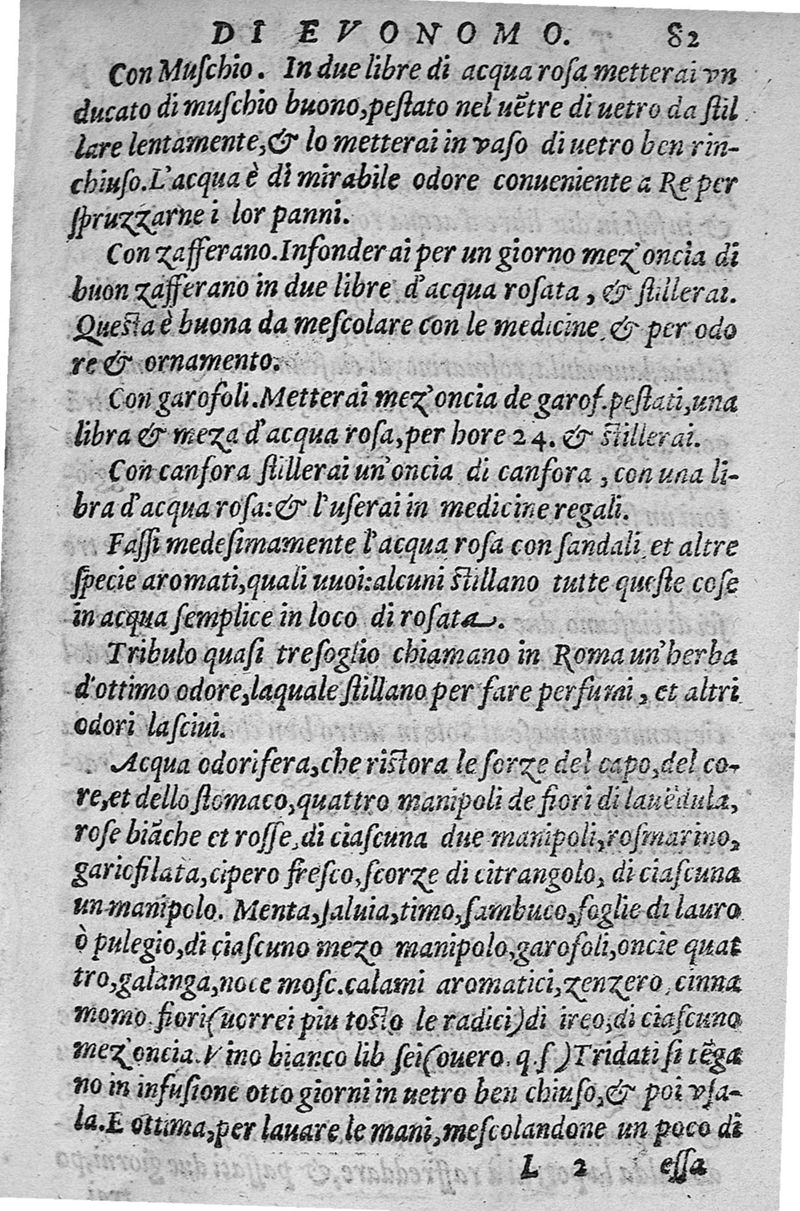 DI EVONOMO. 82
Con Muſchio. In due libre di acqua roſa metterai vn
ducato di muſchio buono, peſtato nel uẽtre di uetro da ſtil
lare lentamente, & lo metterai in vaſo di uetro ben rin-
chiuſo. L'acqua è di mirabile odore conueniente a Re per
ſpruzzarne i lor panni.
Con zafferano. Infonderai per un giorno mez'oncia di
buon zafferano in due libre d'acqua roſata, & ſtillerai.
Queſta è buona da meſcolare con le medicine & per odo
re & ornamento.
Con garofoli. Metterai mez'oncia de garof. peſtati, una
libra & meza d'acqua roſa, per hore 24. & ſtillerai.
Con canfora ſtillerai un'oncia di canfora, con una li-
bra d'acqua roſa: & l'uſerai in medicine regali.
Faſſi medeſimamente l'acqua roſa con ſandali et altre
ſpecie aromati, quali uuoi: alcuni ſtillano tutte queſte coſe
in acqua ſemplice in loco di roſata.
Tribulo quaſi trefoglio chiamano in Roma un'herba
d'ottimo odore, laquale ſtillano per fare perfumi, et altri
odori laſciui.
Acqua odorifera, che riſtora le forze del capo, del co-
re, et dello ſtomaco, quattro manipoli de fiori di lauẽdula,
roſe biãche et roſſe, di ciaſcuna due manipoli, roſmarino,
gariofilata, cipero freſco, ſcorze di citrangolo, di ciaſcuna
un manipolo. Menta, ſaluia, timo, ſambuco, foglie di lauro
ò pulegio, di ciaſcuno mezo manipolo, garofoli, oncie quat
tro, galanga, noce moſc. calami aromatici, zenzero, cinna
momo. fiori (uorrei piu toſto le radici) di ireo, di ciaſcuno
mez'oncia. Vino bianco lib ſei (ouero. q. ſ) Tridati ſi tẽga
no in infuſione otto giorni in uetro ben chiuſo, & poi vſa-
la. E ottima, per lauare le mani, meſcolandone un poco di
L 2 eſſa